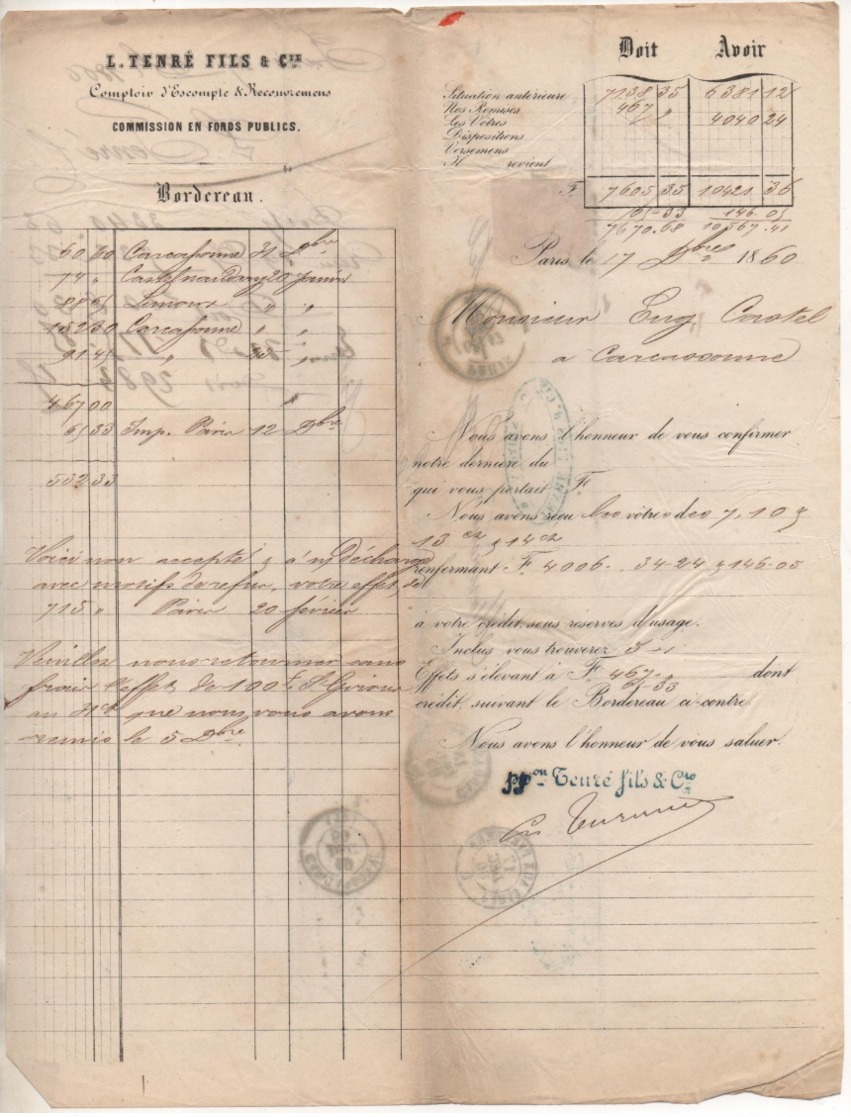 L. TENRÉ FILS & CIE
Comptoir d'Escompte & Recouvremens
COMMISSION EN FONDS PUBLICS.
Bordereau.
Doit Avoir
Situation antérieure 7138 35 6381 12
Nos Remises 467 "
Les Vôtres 4040 24
Dispositions
Versemens
Il revient
F. 7605 35 10421 36
65-33 146.05
7670.68 10,567.41
Paris le 17 Dbre 1860
Monsieur Eug. Castel
a Carcassonne
60 60 Carcassonne 31 Dbre
74 " Castelnaudary 20 Janvier
88 65 Limoux " "
152 30 Carcassonne " "
91 45 " 25 "
467 00
65 33 Imp. Paris 12 Dbre
532 33
Voici non accepté & à m/ décharge
avec motifs de refus, votre effet de
715 " Paris 20 février
Veuillez nous retourner sans
frais l'effet de 100 F. St Girons
au que nous vous avons
remis le 5 Dbre
Nous avons l'honneur de vous confirmer
notre dernière du
qui vous portait F.
Nous avons reçu les vôtres des 7, 10 &
13 ct & 14 ct
renfermant F. 4006. 34-24 & 146.05
à votre crédit, sous réserves d'usage.
Inclus vous trouverez 5-1
Effets s'élevant à F. 467.- dont
65-33
crédit, suivant le Bordereau ci contre.
Nous avons l'honneur de vous saluer.
ppon Tenré fils & Cie